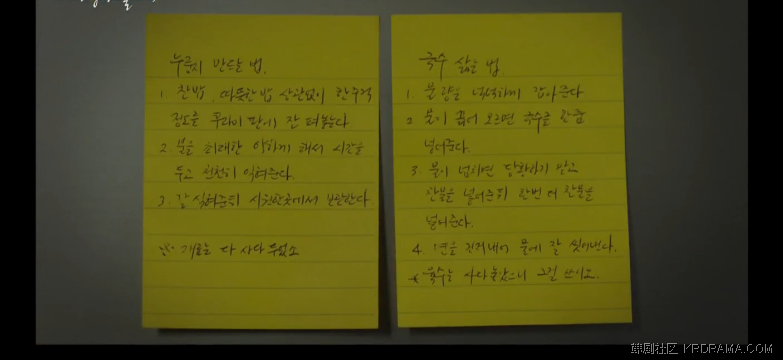 누룽지 만드는 법.
1. 찬밥, 따뜻한밥 상관없이 한주걱
정도를 후라이 판에 잘 펴놓는다
2. 불을 최대한 약하게 해서 시간을
두고 천천히 익혀준다.
3. 잘 식혀준뒤 시원한곳에서 보관한다
※ 재료는 다 사다 두었소
국수 삶는 법
1. 물 양을 넉넉하게 잡아준다
2. 물이 끓어 오르면 국수를 한줌
넣어준다.
3. 물이 넘치면 당황하지 말고
찬물을 넣어준뒤 한번 더 찬물을
넣어준다.
4. 면을 건져내어 물에 잘 씻어낸다.
* 육수는 사다 놓았으니 그걸 쓰시오.
韩剧社区 KRDRAMA.COM